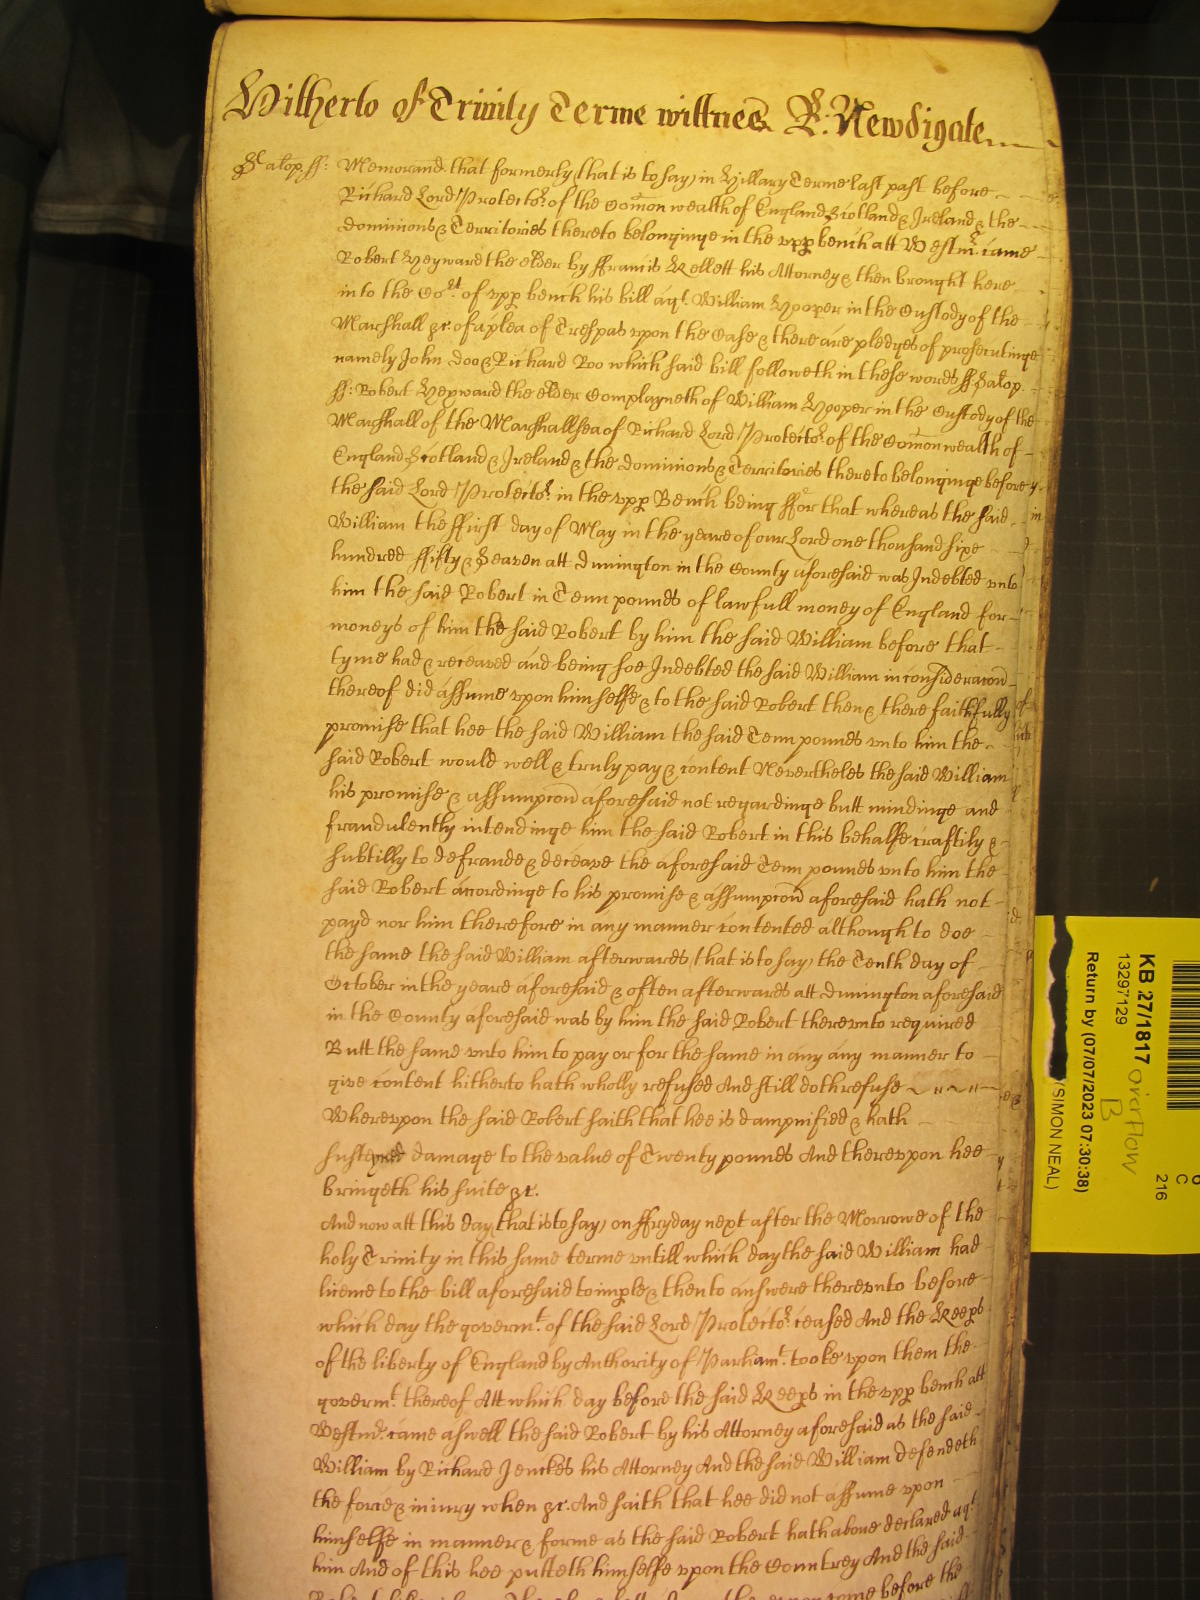 Hitherto of Trinity Terme wittnes R: Newdigate
Salop ff: Memorand. that formerly (that is to say) in Hillary Terme last past before
Richard Lord Protector. of the Comon wealth of England Scotland & Ireland & the
dominions & Territories thereto belonginge in the vpp bench att Westm. came
Robert Heyward the elder by ffrancis Kellett his Attorney & then brought here
into the Cort. of vpp bench his bill agt. William Hooper in the Custody of the
Marshall &c. of a plea of Trespas vpon the Case & there are pledges of prosecutinge
namely John doo & Richard Roo which said bill followeth in these words ff Salop.
ff: Robert Heyward the elder Complayneth of William Hooper in the Custody of the
Marshall of the Marshallsea of Richard Lord Protector. of the Comon wealth of
England Scotland & Ireland & the dominions & Territories thereto belonginge before
the said Lord Protector. in the vpp Bench being ffor that whereas the said
William the ffirst day of May in the yeare of our Lord one thousand sixe
hundred ffifty & Seaven att dunington in the County aforesaid was Indebted vnto
him the said Robert in Tenn pounds of lawfull money of England for
moneys of him the said Robert by him the said William before that
tyme had & receaved and being soe Indebted the said William in consideracon
thereof did assume vpon himselfe & to the said Robert then & there faithfully
promise that hee the said William the said Tenn pounds vnto him the
said Robert would well & truly pay & content Nevertheles the said William
his promise & assumpcon aforesaid not regardinge butt mindinge and
fraudulently intendinge him the said Robert in this behalfe craftily &
subtilly to defraude & deceave the aforesaid Tenn pounds vnto him the
said Robert accordinge to his promise & assumpcon aforesaid hath not
payd nor him therefore in any manner contented although to doe
the same the said William afterwards (that is to say) the Tenth day of
October in the yeare aforesaid & often afterwards att dunington aforesaid
in the County aforesaid was by him the said Robert therevnto required
Butt the same vnto him to pay or for the same in any any manner to
give content hitherto hath wholly refused And still doth refuse
Wherevpon the said Robert saith that hee is dampnified & hath
susteyned damage to the value of Twenty pounds And therevpon hee
bringeth his suite &c.
And now att this day (that is to say) on ffryday next after the Morrowe of the
holy Trinity in this same terme vntill which day the said William had
licence to the bill aforesaid to imple & then to answere therevnto before
which day the govermt. of the said Lord Protector. ceased And the Keeps
of the liberty of England by Authority of Parliamt. tooke vpon them the
govermt. thereof Att which day before the said Keeps in the vpp bench att
Westm. came aswell the said Robert by his Attorney aforesaid as the said
William by Richard Jenckes his Attorney And the said William defendeth
the force & iniury when &c. And saith that hee did not assume vpon
himselfe in manner & forme as the said Robert hath above declared agt
him And of this hee putteth himselfe vpon the Countrey And the said
before the
KB 27/1817
13297129
Return by (07/07/2023 07:30:38)
(SIMON NEAL)
overflow
B
C
216